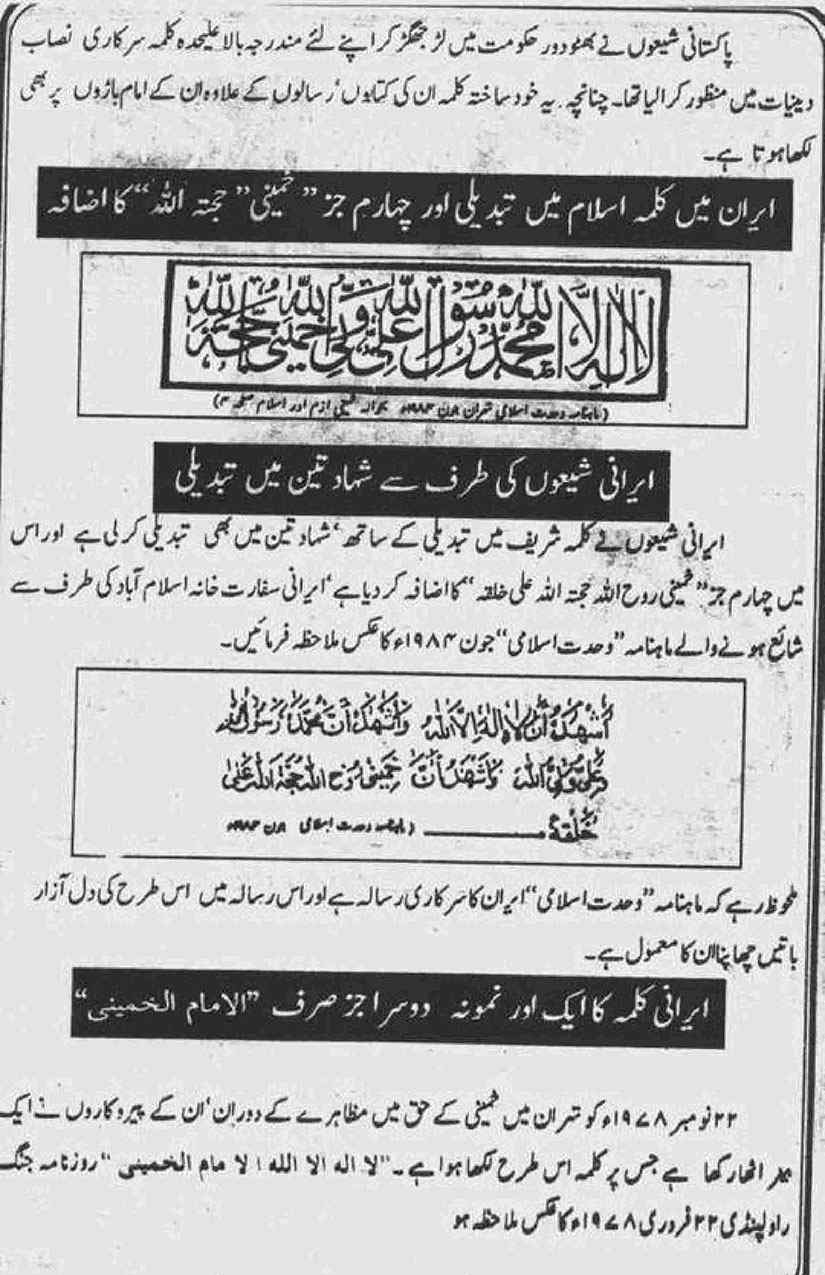 پاکستانی شیعوں نے بھٹو دور حکومت میں لڑ جھگڑ کر اپنے لئے مندرجہ بالا علیحدہ کلمہ سرکاری نصاب
دینیات میں منظور کرالیا تھا۔ چنانچہ یہ خود ساختہ کلمہ ان کی کتابوں‘ رسالوں کے علاوہ ان کے امام باڑوں پر بھی
لکھا ہوتا ہے۔
ایران میں کلمہ اسلام میں تبدیلی اور چہارم جز ”خمینی“ حجتہ اللہ“ کا اضافہ
لَا اِلٰهَ اِلَّا اللّٰهُ مُحَمَّدٌ رَّسُولُ اللّٰهِ عَلِیٌّ وَلِیُّ اللّٰهِ خمینی حُجَّةُ اللّٰهِ
(ماہنامہ وحدت اسلامی تہران جون ۱۹۸۴ء بحوالہ خمینی ازم اور اسلام صفحہ ۴)
ایرانی شیعوں کی طرف سے شہادتین میں تبدیلی
ایرانی شیعوں نے کلمہ شریف میں تبدیلی کے ساتھ‘ شہادتین میں بھی تبدیلی کرلی ہے اور اس
میں چہارم جز ”خمینی روح اللہ حجتہ اللہ علی خلقہ“ کا اضافہ کر دیا ہے‘ ایرانی سفارت خانہ اسلام آباد کی طرف سے
شائع ہونے والے ماہنامہ ”وحدت اسلامی“ جون ۱۹۸۴ء کا عکس ملاحظہ فرمائیں۔
اَشْهَدُ اَنْ لَا اِلٰهَ اِلَّا اللّٰهُ وَاَشْهَدُ اَنَّ مُحَمَّدًا رَسُولُ اللّٰهِ
وَعَلِیٌّ وَلِیُّ اللّٰهِ وَاَشْهَدُ اَنَّ خُمَیْنِی رُوْحُ اللّٰهِ حُجَّةُ اللّٰهِ عَلٰی
خَلْقِهٖ ـــــــــ (ماہنامہ وحدت اسلامی جون ۱۹۸۴ء
ملحوظ رہے کہ ماہنامہ ”وحدت اسلامی“ ایران کا سرکاری رسالہ ہے اور اس رسالہ میں اس طرح کی دل آزار
باتیں چھاپنا ان کا معمول ہے۔
ایرانی کلمہ کا ایک اور نمونہ دوسرا جز صرف ”الامام الخمینی“
۲۲ نومبر ۱۹۷۸ء کو تہران میں خمینی کے حق میں مظاہرے کے دوران‘ ان کے پیروکاروں نے ایک
اٹھا رکھا ہے جس پر کلمہ اس طرح لکھا ہوا ہے۔ ”لا اله الا الله ۱ لا مام الخمینی“ روزنامہ جنگ
راولپنڈی ۲۲ فروری ۱۹۷۸ء کا عکس ملاحظہ ہو